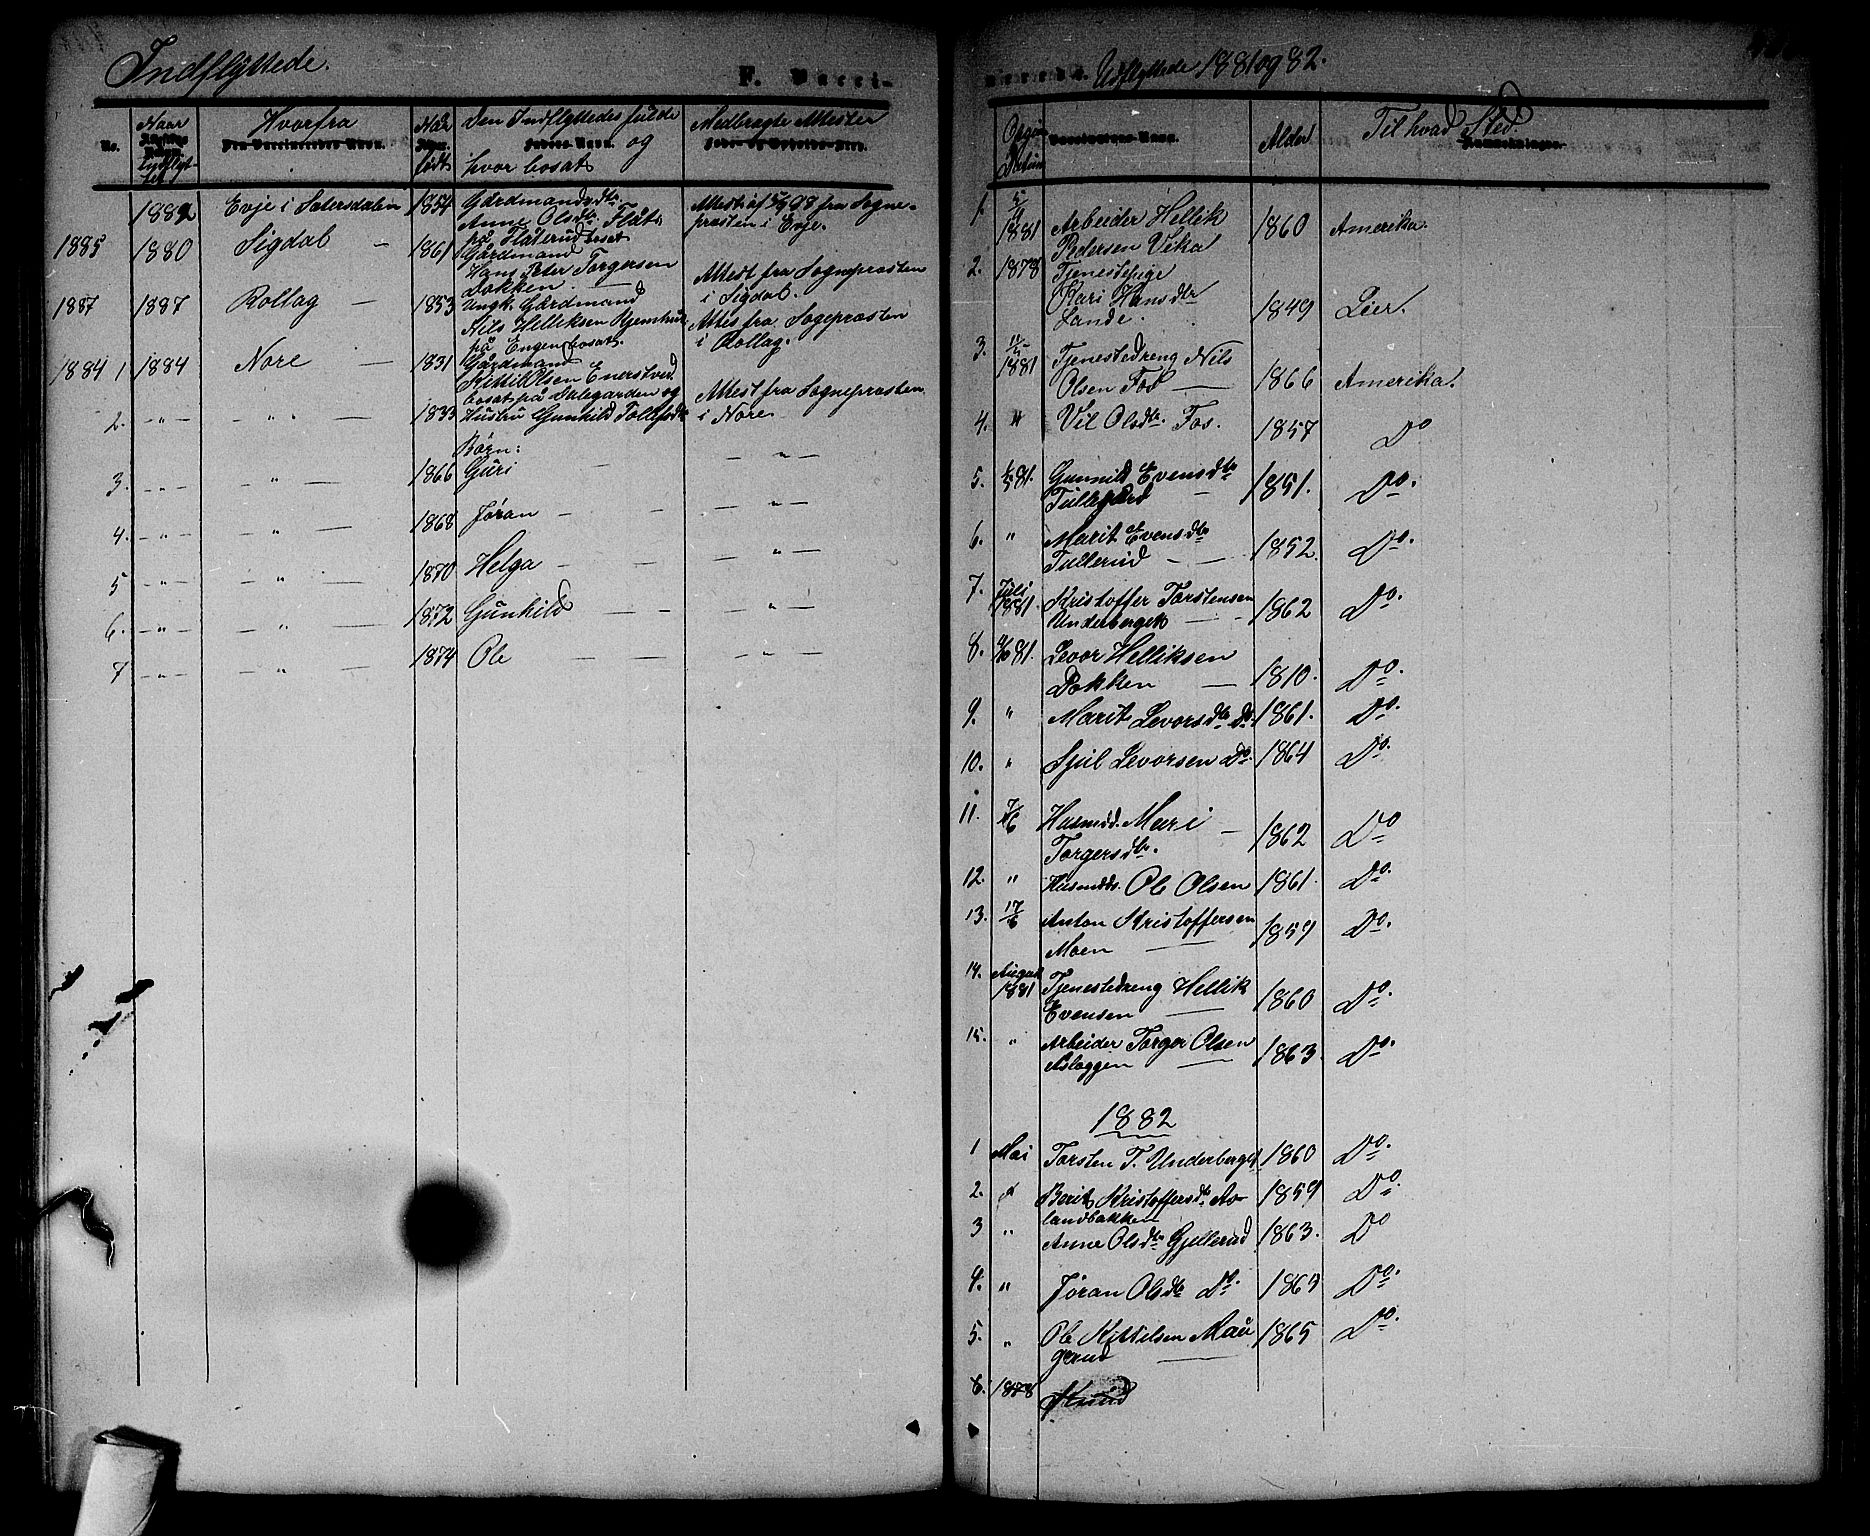 Indflyttede.
F. Vacci-
No.
Naar
Indflyt-
tet
Hvorfra
Naar
født
Den Indflyttedes fulde
Navn og
hvor bosat
Medbragte Attester
1882 Evje i Sætersdalen 1854 Gårdmandsdtr.
Anne Olsdtr. Flåt
på Flåterud bosat
Attest af 5/9 98 fra Sogne-
præsten i Evje.
1885 1880 Sigdal — 1861 Gårdmand
Hans Peter Torgersen
Dokken. —
Attest fra Sognepræsten
i Sigdal.
1887 1887 Rollag — 1853 Ungk. Gårdmand
Nils Helliksen
på Engen bosat.
Attes fra Sogepræsten
i Rollag.
1884 1 1884 Nore — 1831 Gårdmand
Kittil Olsen Enerstved
bosat på Dalegarden og
Attest fra Sognepræsten
i Nore
2. — " — — " — 1833 Hustru Gunhild Tollefsdtr
Børn:
3. — " — — " — 1866 Guri — — " —
4. — " — — " — 1868 Jøran — — — " —
5 — " — — " — 1870 Helga — — — " —
6. — " — — " — 1872 Gunhild — — — " —
7 — " — — " — 1874 Ole — — — " —
Udflyttede 1881 og 82.
Alder
Til hvad Sted.
1. 5/4 1881 Arbeider Hellik
Pedersen Vika 1860 Amerika.
2. 1878 Tjenestepige
Kari Hansdtr
Lande. 1849 Lier.
3. 1881 Tjenestedreng Nils
Olsen Fos — 1866 Amerika.
4. " Vil Olsdtr. Fos. 1857 Do
5. 81. Gunnild Evensdtr
Tullerud — 1851. Do.
6. " Marit Evensdtr
Tullerud — 1852. Do.
7. Juli 1881. Kristoffer Torstensen
Underberget — 1862 Do.
8. 81. Levor Helliksen
Dokken — 1810. Do.
9. " Marit Levorsdtr Do. 1861. Do.
10. " Sjul Levorsen Do. 1864 Do.
11. 7/6 Husmd. Mari —
Torgersdtr. 1862 Do
12. " Husmds. Ole Olsen 1861. Do.
13. 17/6 Anton Kristoffersen
Moen — 1859 Do.
14. August 1881 Tjenestedreng Hellik
Evensen — 1860 Do.
15. " Arbeider Torger Olsen
Aslaggen — 1863. Do.
1882
1 Mai Torsten T. Underberget 1860 Do.
2. " Berit Kristoffersdtr. As-
landbakken 1859 Do
3 " Anne Olsdtr Gjellerud 1863. Do
4. " Jøran Olsdtr Do. 1864 Do.
5. " Ole Kittelsen Mau
gerud — 1865 Do.
6. 1878